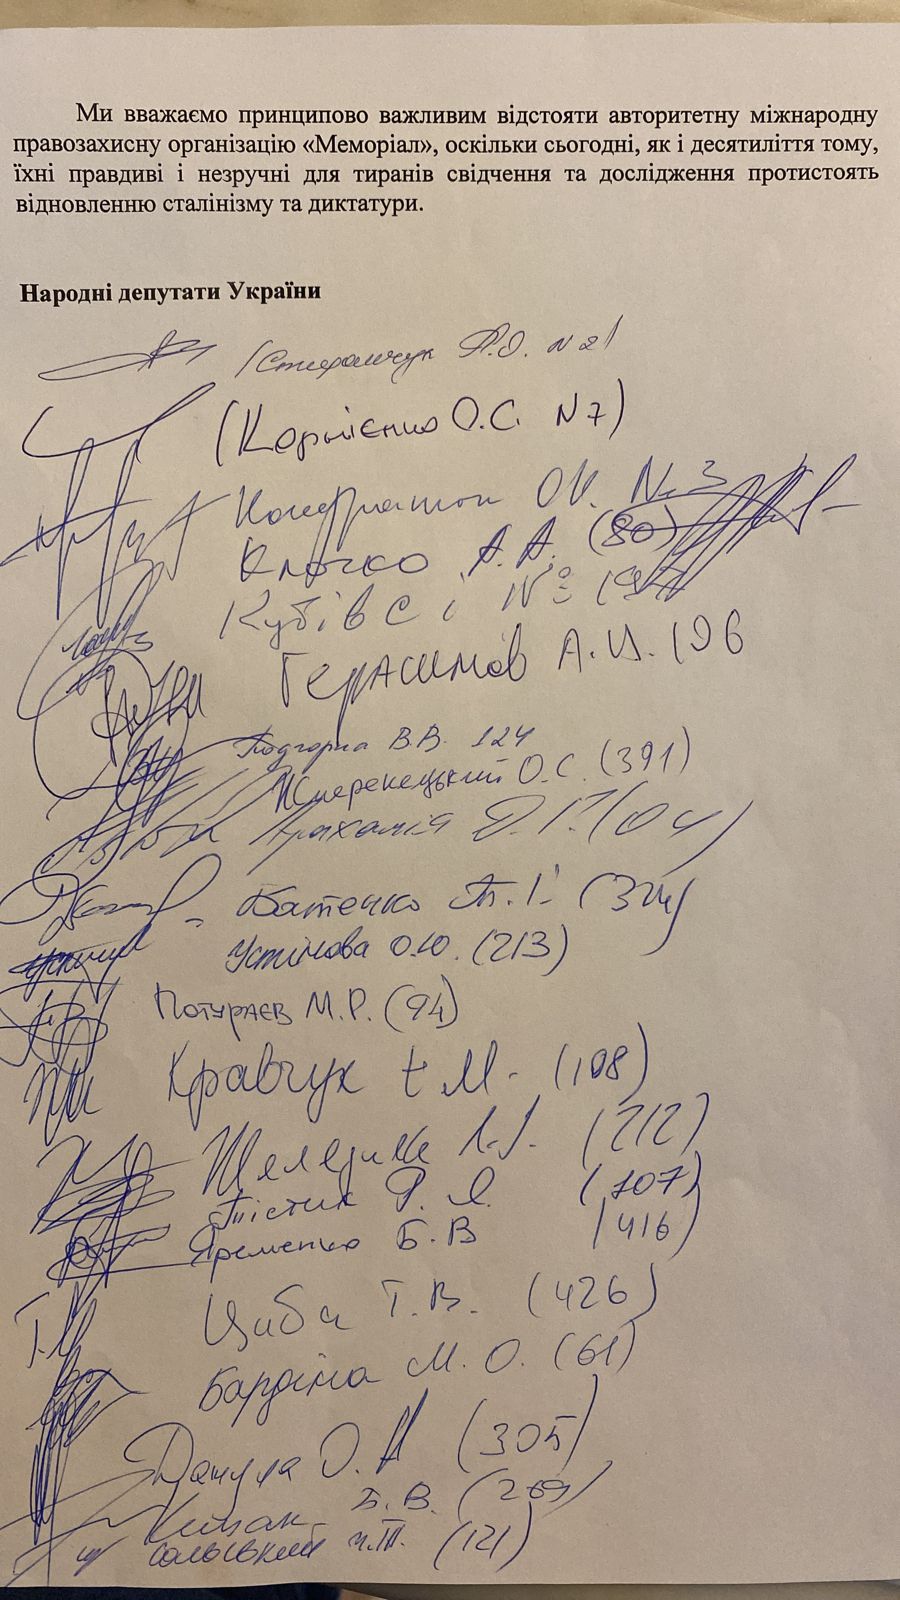 Ми вважаємо принципово важливим відстояти авторитетну міжнародну
правозахисну організацію «Меморіал», оскільки сьогодні, як і десятиліття тому,
їхні правдиві і незручні для тиранів свідчення та дослідження протистоять
відновленню сталінізму та диктатури.
Народні депутати України
(Стефанчук Р.О. №21
(Корнієнко О.С. №7)
О.К. №3
Клочко А.А. (80)
Кубів С І №
Герасимов А.И. 196
Підгорна В.В. 124
Жмеренецький О.С. (391)
Арахамія Д.Г.
Батенко Т.І. (324)
Устінова О.Ю. (213)
Потураєв М.Р. (94)
Кравчук Є.М. (108)
(212)
Тістик Р. Я. (107)
Яременко Б.В (416)
Циба Т.В. (426)
Бардіна М.О. (61)
О. А (305)
Б.В. (269)
(121)